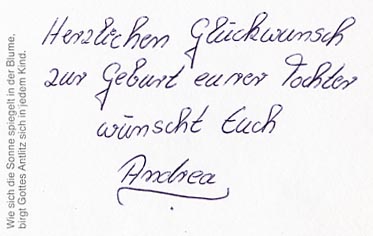 Herzlichen Glückwunsch
zur Geburt eurer Tochter
wünscht Euch
Andrea
Wie sich die Sonne spiegelt in der Blume,
birgt Gottes Antlitz sich in jedem Kind.